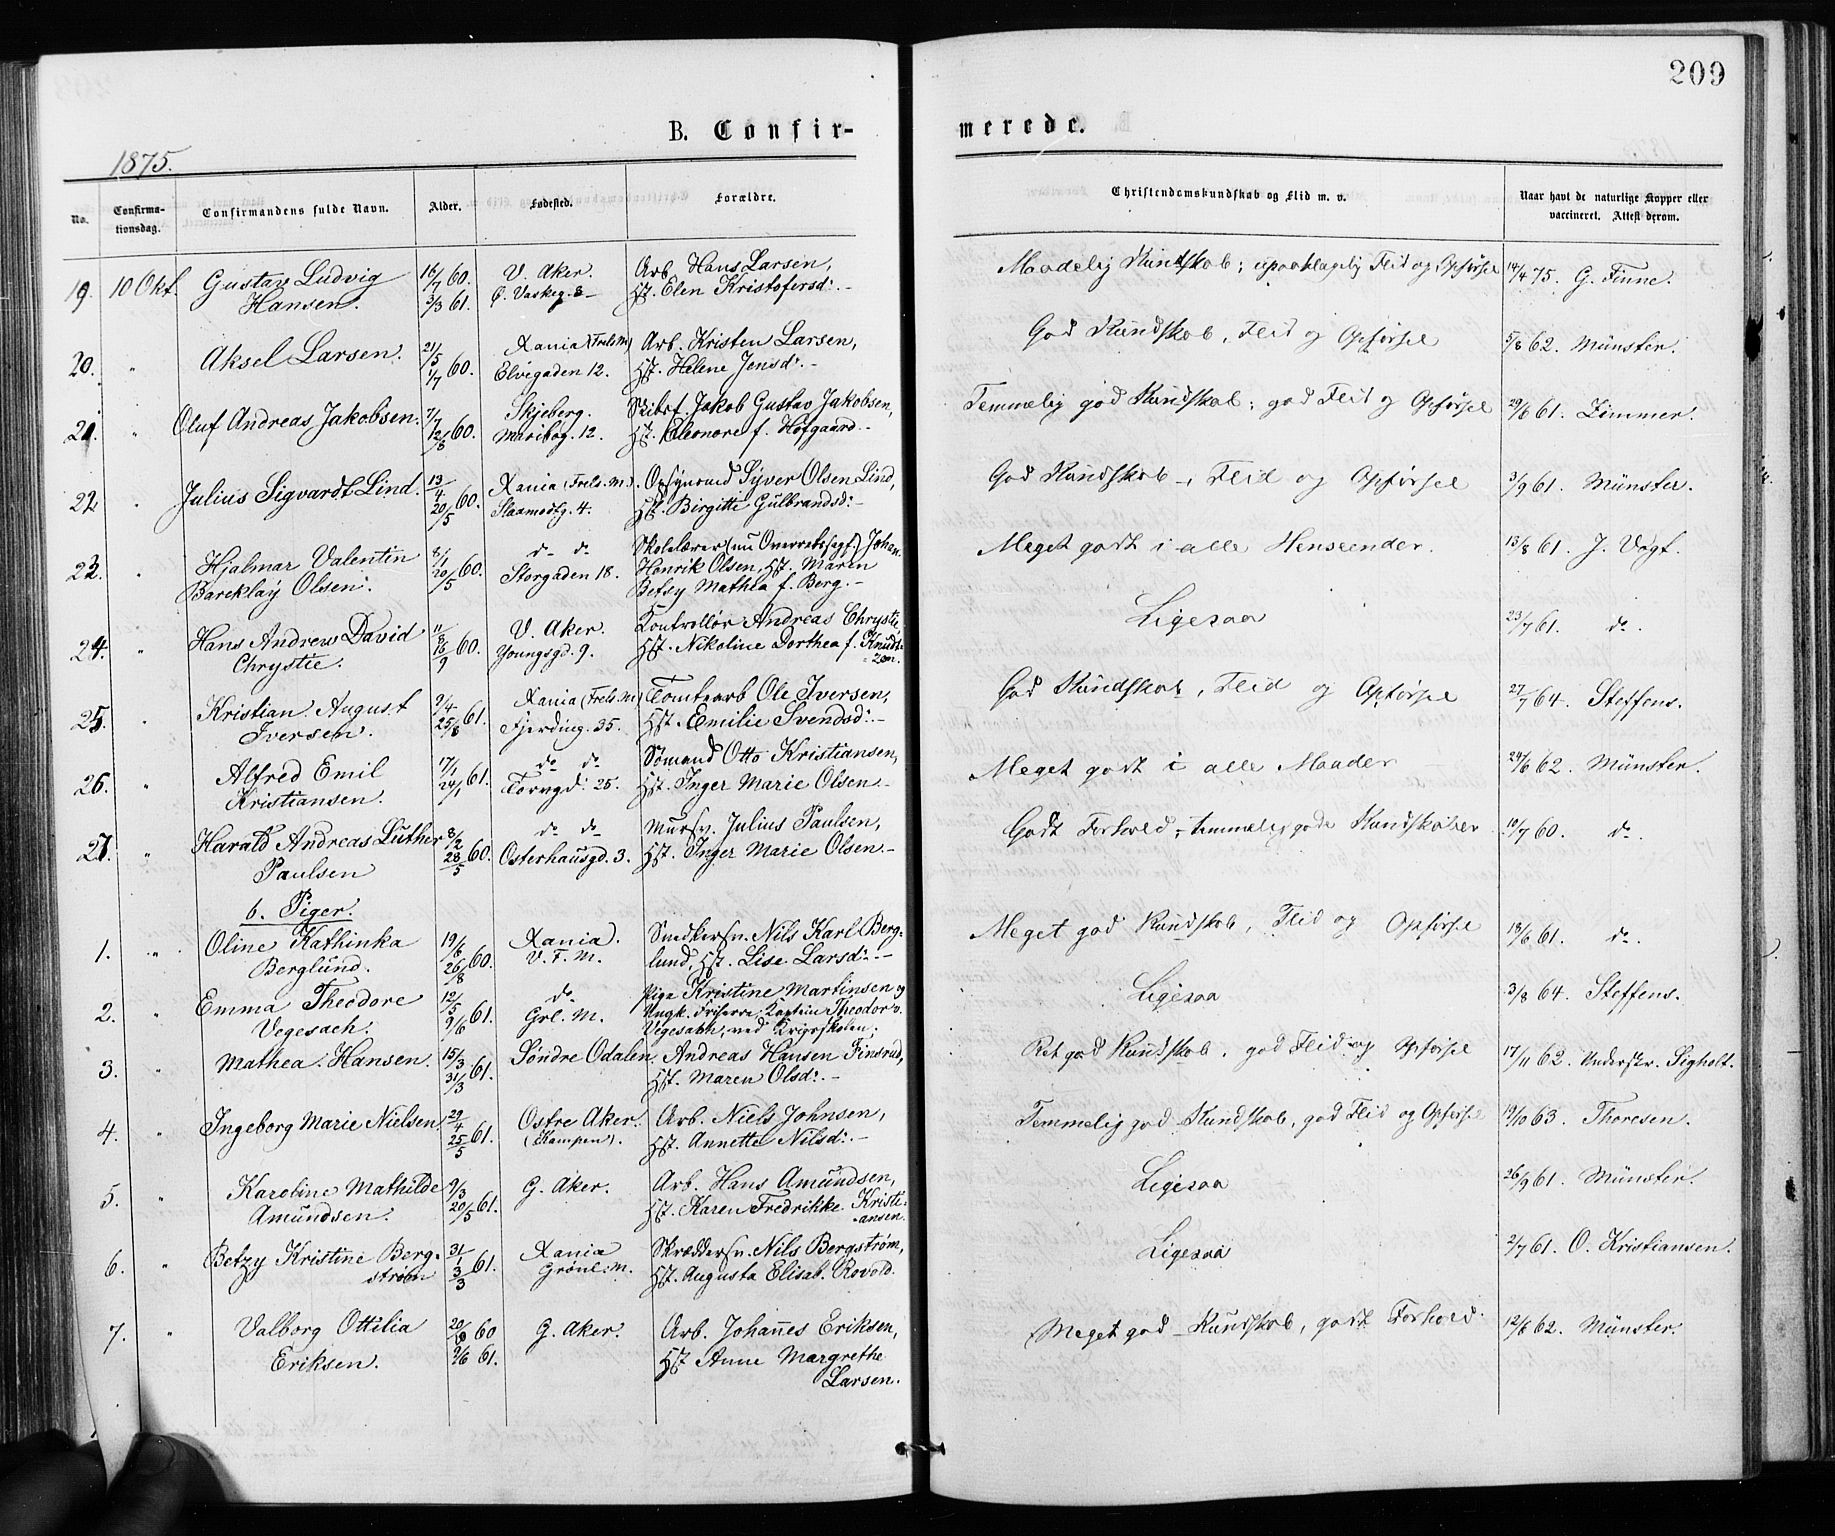 209
B. Confir-
merede.
1875.
No.
Confirma-
tionsdag.
Confirmandens fulde Navn.
Alder.
Fødested.
Forældre.
Christendomskundskab og Flid m. v.
Naar havt de naturlige Kopper eller
vaccineret. Attest derom.
19. 10 Okt. Gustav Ludvig 16/7 60. V. Aker. Arb. Hans Larsen, Maadelig Kundskab; upaaklagelig Flid og Opførsel 14/4 75. G. Finne.
Hansen. 3/3 61. Ø. Vaskeg. 8 - Hst. Elen Kristofersd: -
20. " Aksel Larsen. 21/5 60. Xania (Frels. M) Arb. Kristen Larsen, God Kundskab, Flid og Opførsel 5/8 62. Münster.
1/7 Elvegaden 12. Hst. Helene Jensd: -
21. " Oluf Andreas Jakobsen. 7/7 60. Skjeberg. Skibsf. Jakob Gustav Jakobsen, Temmelig god Kundskab; god Flid og Opførsel 29/6 61. Zimmer.
12/8 Maribog. 12. Hst. Eleonore f. Hofgaard -
22 " Julius Sigvardt Lind. 13/4 60. Xania (Frels. M.) Opsynsmd Syver Olsen Lind, God Kundskab, Flid og Opførsel 3/9 61. Münster.
20/5 Slaamodtg. 4. Hst. Birgitte Gulbrandsd: -
23. " Hjalmar Valentin 8/1 60. do do Skolelærer (nu Overretssagf.) Johan Meget godt i alle Henseender. 13/8 61. J. Vogt.
Barcklay Olsen. 20/5 Storgaden 18. Henrik Olsen, Hst. Maren
Betsy Mathea f. Berg. -
24. " Hans Andrew David 11/8 60. V. Aker. Kontrollør Andreas Chrystie, Ligesaa 23/7 61. do.
Chrystie. 16/9 Youngsgd. 9. Hst. Nikoline Dorthea f. Knudt-
zon.
25. " Kristian August 9/4 61. Xania (Frels. M) Tomtearb Ole Iversen, God Kundskab, Flid og Opførsel 27/7 64. Steffens.
Iversen. 25/8 Fjerding. 35. Hst. Emilie Svendsd: -
26. " Alfred Emil 17/1 61. do do Sømand Otto Kristiansen, Meget godt i alle Maader 24/6 62. Münster.
Kristiansen. 24/1 Torvgd. 25. Hst. Inger Marie Olsen -
27. " Harald Andreas Luther 8/2 60. do do Mursv. Julius Paulsen, Godt Forhold, temmelig gode Kundskaber 10/7 60. do
Paulsen 28/5 Osterhausgd. 3. Hst. Inger Marie Olsen -
b. Piger.
1. " Oline Kathinka 19/6 60. Xania. Snedkersv. Nils Karl Berg- Meget god Kundskab, Flid og Opførsel 18/6 61. do.
Berglund. 26/8 V. F. M. lund, Hst. Lise Larsd: -
2. " Emma Theodore 12/5 61. do Pige Kristine Martinsen og Ligesaa 3/8 64. Steffens.
Vegesach. 9/6 Grl. M. Ungk. Friherre, Kaptein Theodor v.
Vegesach, ved Krigsskolen.
3. " Mathea Hansen. 15/3 61. Søndre Odalen. Andreas Hansen Finsrud, Ret god Kundskab, god Flid og Opførsel 17/11 62. Underskr. Sigholt.
31/3 Hst. Maren Olsd: -
4. " Ingeborg Marie Nielsen. 29/4 61. Østre Aker. Arb. Niels Johnsen, Temmelig god Kundskab, god Flid og Opførsel 19/10 63. Thoresen.
25/5 (Kampen). Hst. Annette Nilsd: -
5. " Karoline Mathilde 9/3 61. G. Aker. Arb. Hans Amundsen, Ligesaa 26/9 61. Münster.
Amundsen. 20/5 Hst. Karen Fredrikke Kristi-
ansen.
6. " Betzy Kristine Berg- 31/1 61. Xania Skræddersv. Nils Bergstrøm, Ligesaa 2/7 61. O. Kristiansen.
strøm 3/3 Grønl. M. Hst. Augusta Elisab. Rovold.
7. " Valborg Ottilia 20/9 60 G. Aker. Arb. Johannes Eriksen, Meget god Kundskab, godt Forhold. 12/6 62. Münster.
Eriksen. 9/6 61. Hst Anne Margrethe
Larsen.